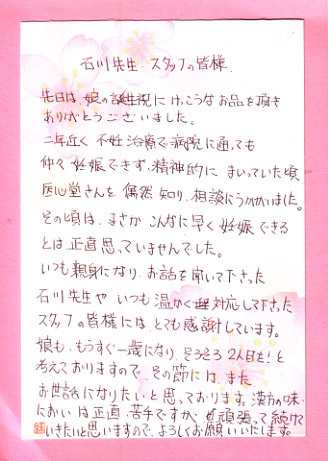 石川先生・スタッフの皆様
先日は、娘の誕生祝にけっこうなお品を頂き
ありがとうございました。
二年近く不妊治療で病院に通っても
仲々妊娠できず、精神的にまいっていた頃
医心堂さんを偶然知り、相談にうかがいました。
その頃は、まさかこんなに早く妊娠できる
とは正直思っていませんでした。
いつも親身になりお話を聞いて下さった
石川先生や いつも温かく対応して下さった
スタッフの皆様にはとても感謝しています。
娘も、もうすぐ一歳になり、そろそろ2人目を！と
考えておりますので、その節には、また
お世話になりたいと思っております。漢方の味・
においは正直、苦手ですが、頑張って続けて
いきたいと思いますので、よろしくお願いいたします。